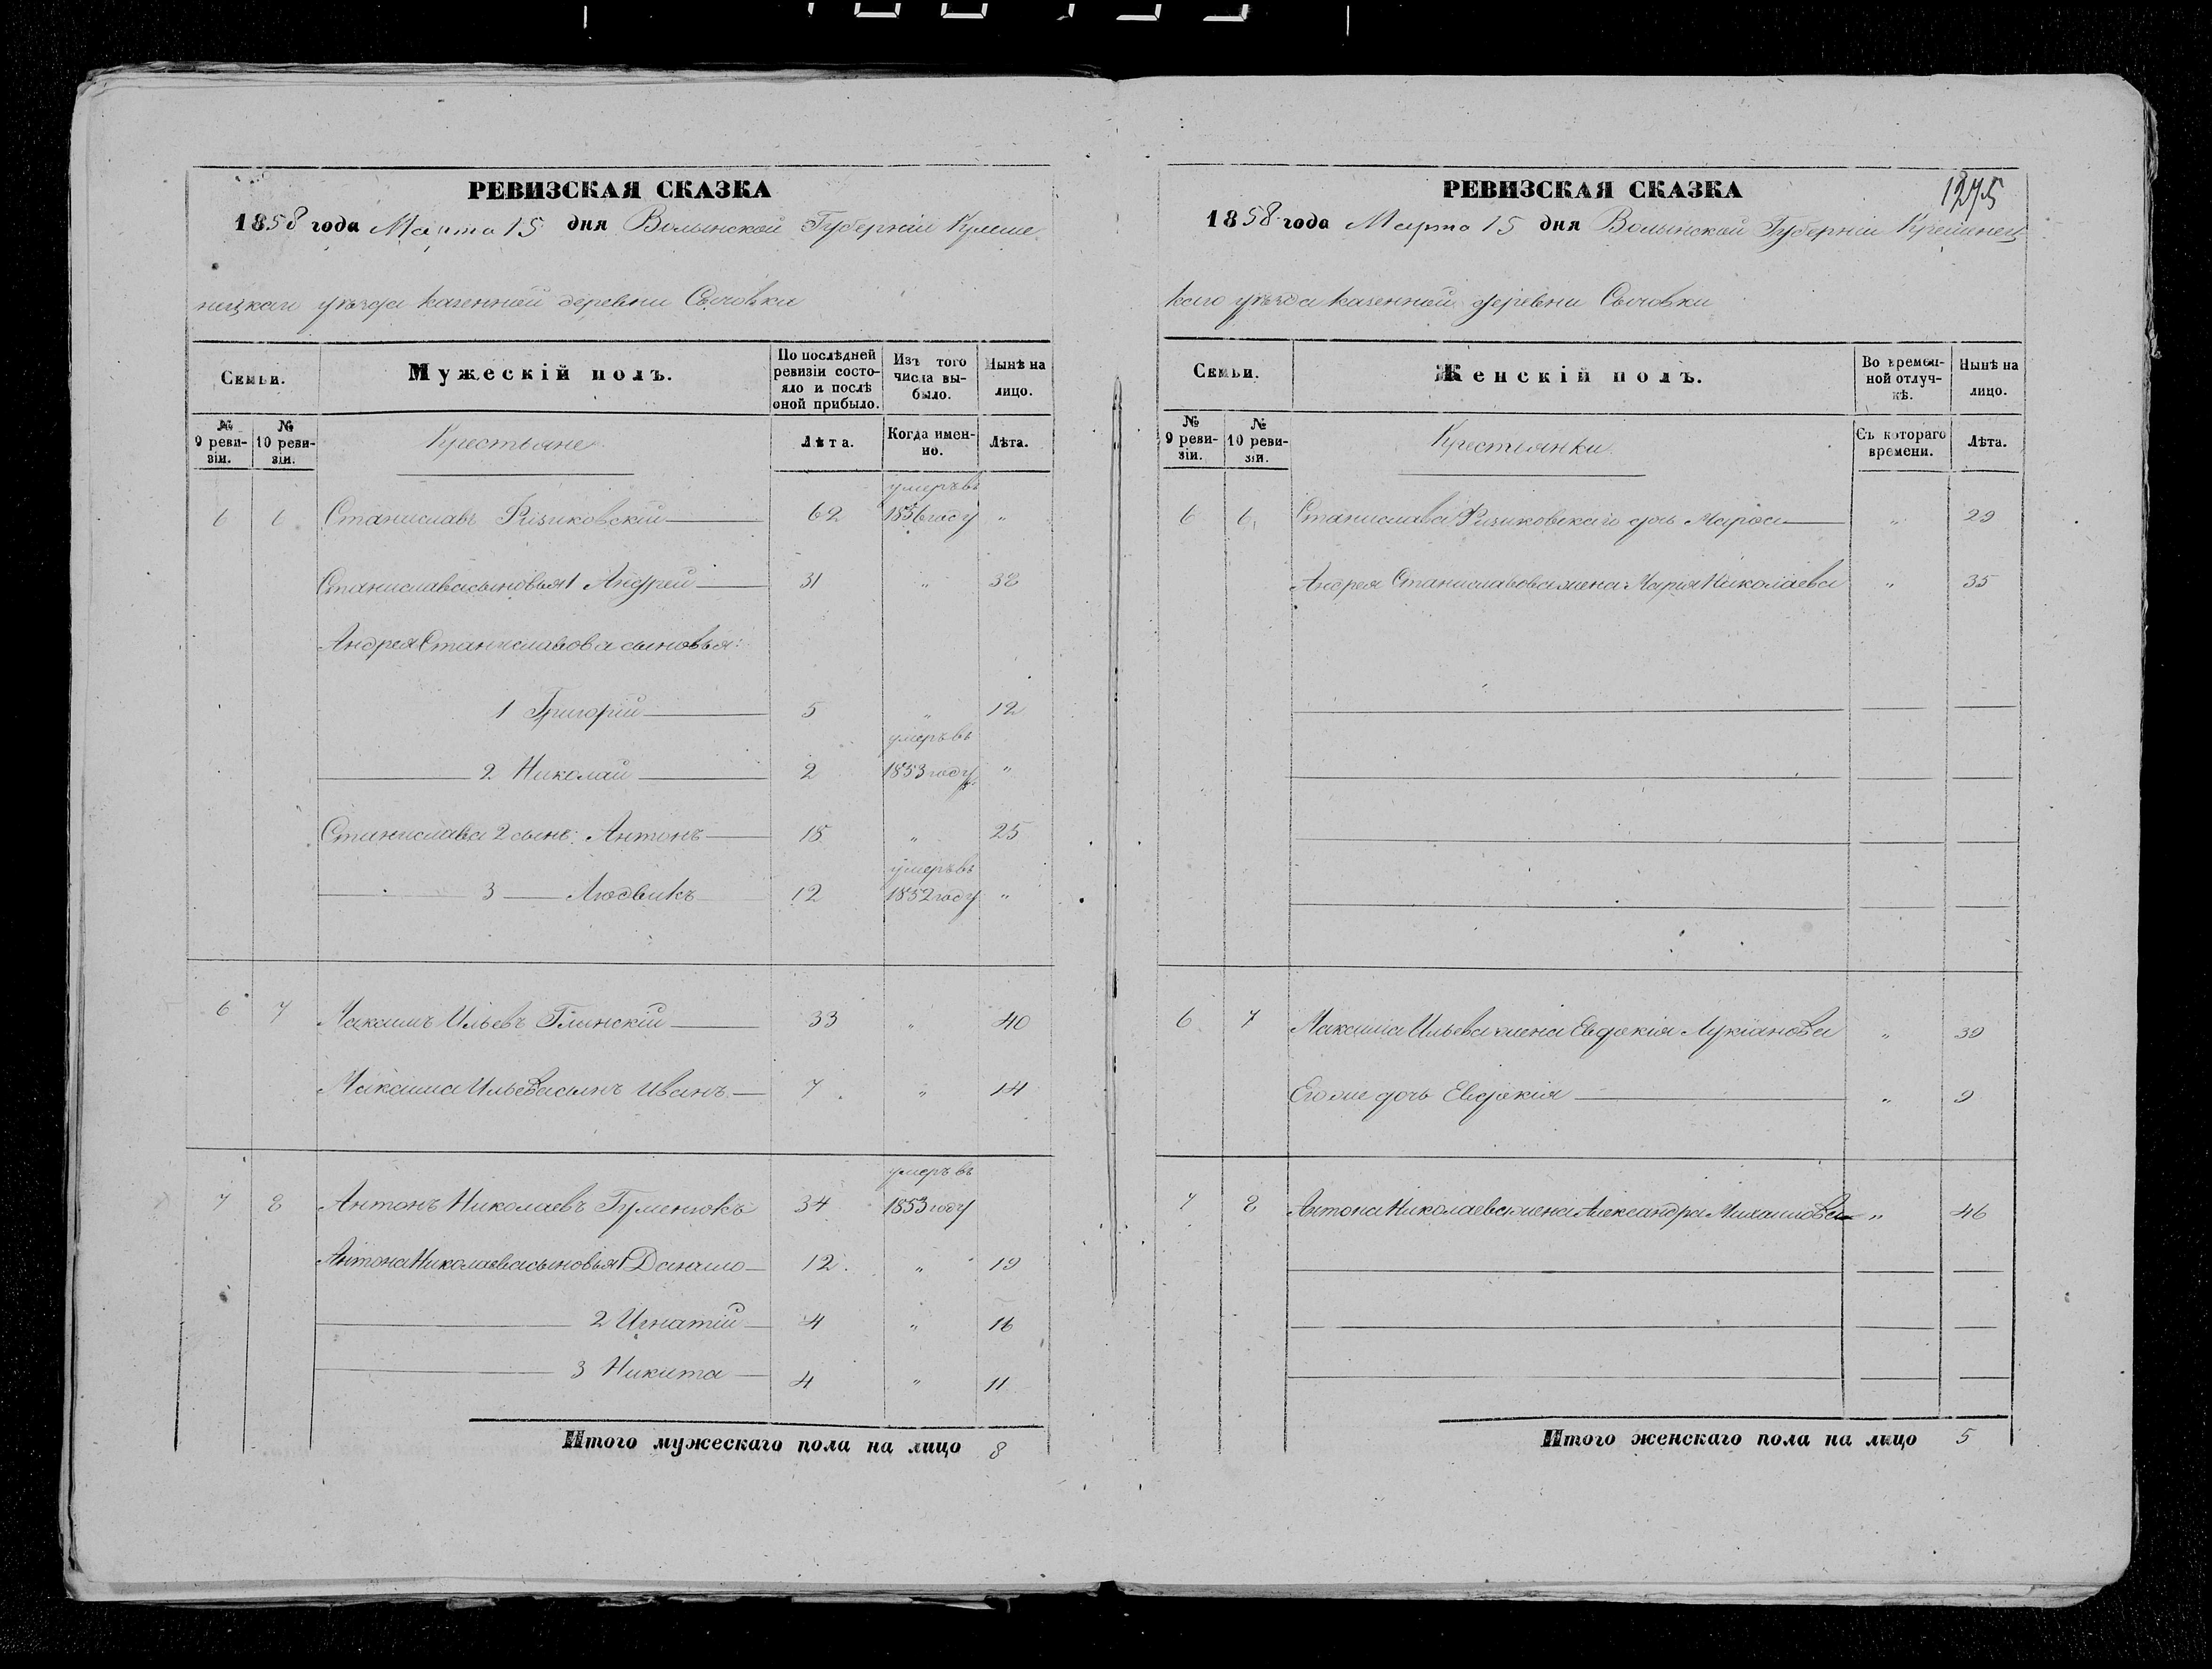 РЕВИЗСКАЯ СКАЗКА
1858 года Марта 15 дня Волынской Губерніи Креме
ницкаго уѣзда казенной деревни Сычовки
Семьи.
Мужескій полъ.
По послѣдней ревизіи состояло и послѣ оной прибыло.
Изъ того числа выбыло.
Нынѣ на лицо.
№ 9 ревизіи.
№ 10 ревизіи.
Крестьяне
Лѣта.
Когда именно.
Лѣта.
умеръ въ
6 6 Станиславъ Ризиковскій 62 1856 году "
Станислава сыновья 1 Андрей 31 " 38
Андрея Станиславова сыновья:
1 Григорій 5 " 12
умеръ въ
2 Николай 2 1853 году "
Станислава 2 сынъ: Антонъ 18 " 25
умеръ въ
3 Людвикъ 12 1852 году "
6 7 Максимъ Ильевъ Глинскій 33 " 40
Максима Ильева сынъ Иванъ 7 " 14
умеръ въ
7 8 Антонъ Николаевъ Гуменюкъ 34 1853 году
Антона Николаева сыновья 1 Данило 12 " 19
2 Игнатій 4 " 16
3 Никита 4 " 11
Итого мужескаго пола на лицо 8
РЕВИЗСКАЯ СКАЗКА
1275
1858 года Марта 15 дня Волынской Губерніи Кременец
каго уѣзда казенной деревни Сычовки
Семьи.
Женскій полъ.
Во временной отлучкѣ.
Нынѣ на лицо.
№ 9 ревизіи.
№ 10 ревизіи.
Крестьянки
Съ котораго времени.
Лѣта.
6 6 Станислава Ризиковскаго дочь Мароа " 29
Андрея Станиславова жена Марія Николаева " 35
6 7 Максима Ильева жена Евдокія Лукіанова " 39
Его же дочь Евдокія " 9
7 8 Антона Николаева жена Александра Михайлова " 46
Итого женскаго пола на лицо 5